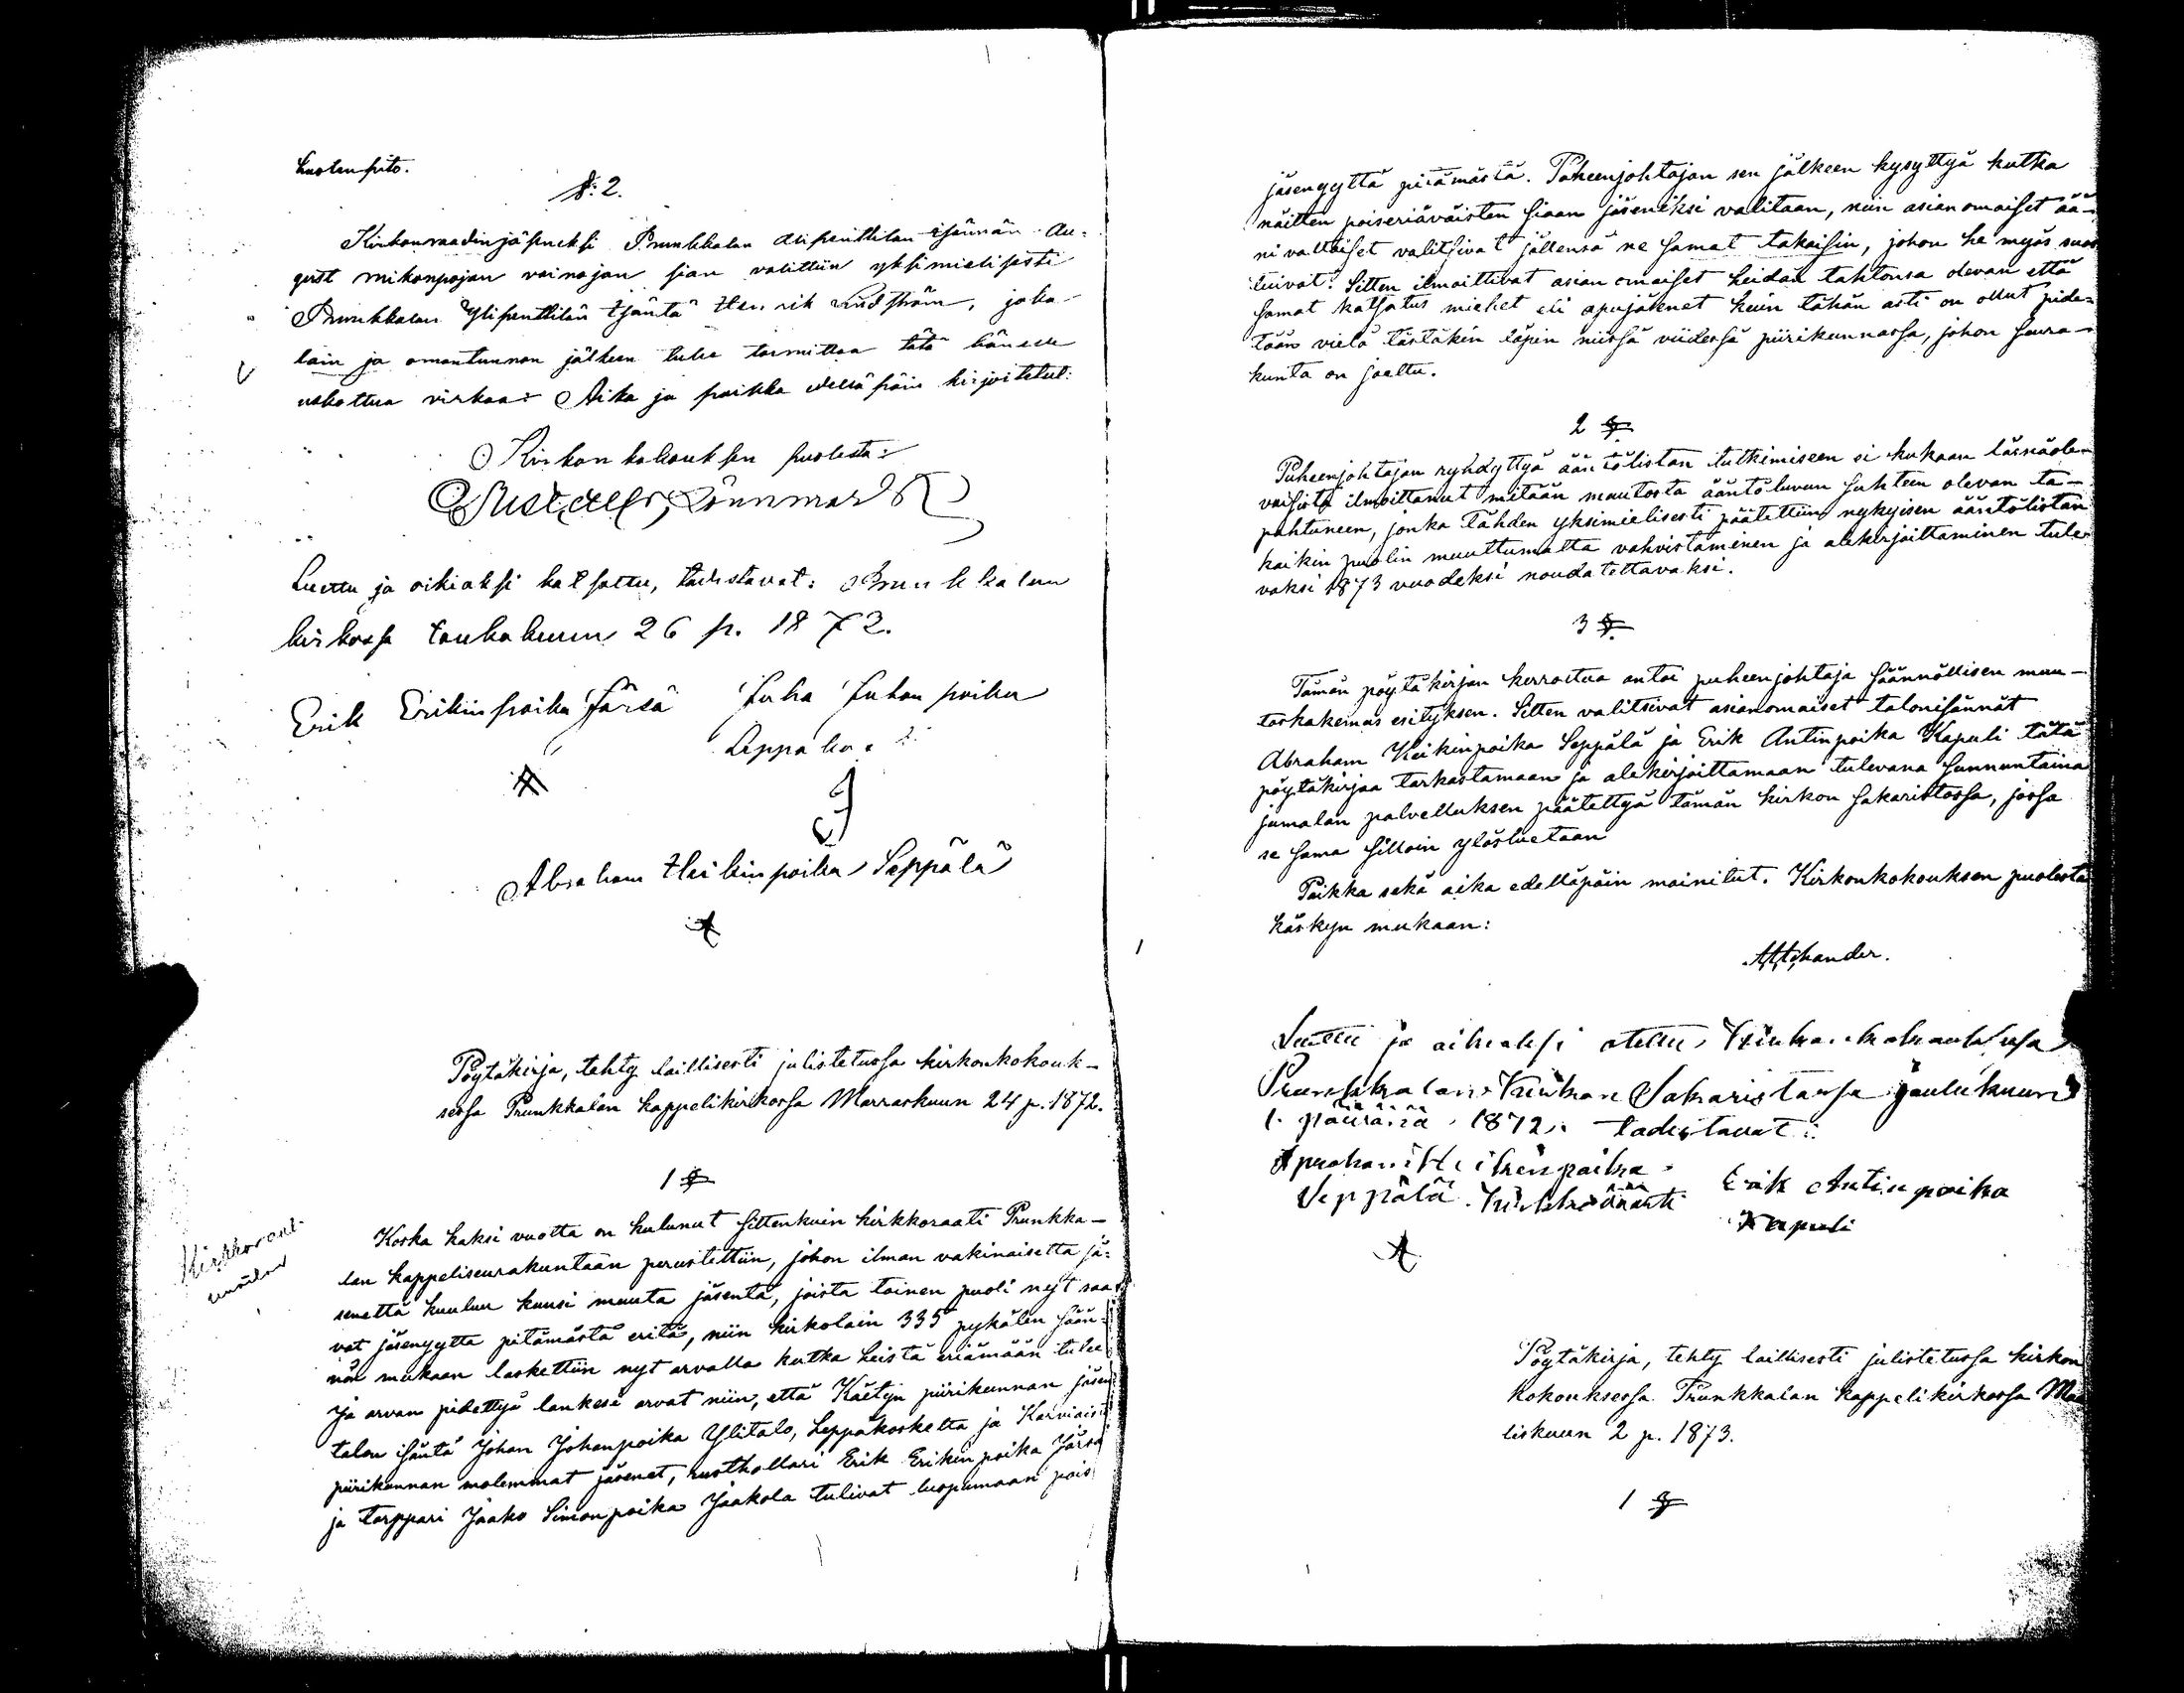 huolenpito.
§: 2.
Kirkonraadin jäseneksi Prunkkalan Alipenttilän Isännän Au-
gust Mikonpojan vainajan sian valittiin yksimielisesti
Prunkkalan Ylipenttilän Isäntä Henrik Lindström, joka
lain ja omantunnon jälkeen tulee toimittaa tätä hänelle
uskottua virkaa: Aika ja paikka edelläpäin kirjoitetut:
Kirkon kokouksen puolesta:
Lönnmark
Luettu ja oikiaksi katsottu, todistavat: Prunkkalan
kirkossa Toukokuun 26 p. 1872.
Erik Erikinpoika Järsä Juha Juhan poika
Leppäkos
Abraham Heikinpoika Seppälä
Pöytäkirja, tehty laillisesti julistetussa kirkonkokouk-
sessa Prunkkalan kappelikirkossa Marraskuun 24 p. 1872.
1 §
Koska kaksi vuotta on kulunut sittenkuin kirkkoraati Prunkka-
lan kappeliseurakuntaan perustettiin, johon ilman vakinaisetta jä-
senettä kuuluu kuusi muuta jäsentä, joista toinen puoli nyt saa-
vat jäsenyyttä pitämästä eritä, niin kirkolain 335 pykälän sään-
nön mukaan laskettiin nyt arvalla kutka heistä eriämään tulee
Ja arvan pidettyä lankesi arvat niin, että Kaetyn piirikunnan jäsen
talon isäntä Johan Johanpoika Ylitalo, Leppäkoskelta ja Karviaisten
piirikunnan molemmat jäsenet, rusthollari Erik Erikinpoika Järsä
ja torppari Jaako Simonpoika Jaakola tulivat luopumaan pois
Kirkkoraat
jäsenyyttä pitämästä. Puheenjohtajan sen jälkeen kysyttyä kutka
näitten poiseriäväisten siaan jäseniksi valitaan, niin asianomaiset ää-
nivaltaiset valitsivat jällensä ne samat takaisin, johon he myös suos-
tuivat. Sitten ilmoittivat asianomaiset heidän tahtonsa olevan että
samat katsatus miehet eli apujäsenet kuin tähän asti on ollut pide-
tään vielä tästäkin läpin niissä viidessä piirikunnassa, johon seura-
kunta on jaettu.
2 §
Puheenjohtajan ryhdyttyä ääntölistan tutkimiseen ei kukaan läsnäole-
vaisista ilmoittanut mitään muutosta ääntöluvun suhteen olevan ta-
pahtuneen, jonka tähden yksimielisesti päätettiin nykyisen ääntölistan
kaikin puolin muuttumatta vahvistaminen ja alekirjoittaminen tule-
vaksi 1873 vuodeksi noudatettavaksi.
3 §
Tämän pöytäkirjan kerrottua antoi puheenjohtaja säännöllisen muu-
toshakemus esityksen. Sitten valitsivat asianomaiset talonisännät
Abraham Heikinpoika Seppälä ja Erik Antinpoika Kapuli tätä
pöytäkirjaa tarkastamaan ja alekirjoittamaan tulevana sunnuntaina
jumalan palvelluksen päätettyä tämän kirkon sakaristossa, jossa
se sama silloin ylösluetaan
Paikka sekä aika edelläpäin mainitut. Kirkonkokouksen puolesta
käskyn mukaan:
Luettu ja oikeaksi otettu, Kirkonkokouksessa
Prunkkalan Kirkon Sakaristossa joulukuun
1. päivänä 1872. todistavat:
Aprahami Heikinpoika
Seppälä. Kirkkoväärti
Erik Antinpoika
Kapuli
Pöytäkirja, tehty laillisesti julistetussa kirkon
kokouksessa Prunkkalan kappelikirkossa Maa
liskuun 2 p. 1873.
1 §